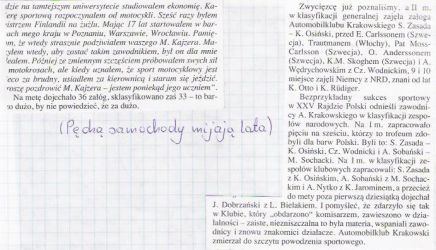 dzie na tamtejszym uniwersytecie studiowałem ekonomię. Ka-
rę sportową rozpocząłem od motocykli. Sześć razy byłem
istrzem Finlandii na żużlu. Mając 17 lat startowałem w bar-
ach mego kraju w Poznaniu, Warszawie, Wrocławiu. Pamię-
m, że wtedy strasznie podziwiałem waszego M. Kajzera. Ma-
yłem wtedy, aby zostać takim zawodnikiem, był on dla mnie
deałem. Później ze zmiennym szczęściem próbowałem swych sił
motokrosach, ale kiedy uznałem, że sport motocyklowy jest
eco za brudny, usiadłem za kierownicą i staram się jeździć.
roszę pozdrowić M. Kajzera – jestem poniekąd jego uczniem".
Na metę dojechało 36 załóg, sklasyfikowano zaś 33 – to bar-
o dużo, by nie powiedzieć, że za dużo.
(Pędzą samochody mijają lata)
Zwycięzcę już poznaliśmy, a II m.
w klasyfikacji generalnej zajęła załoga
Automobilklubu Krakowskiego S. Zasada
- K. Osiński, przed E. Carlssonem (Szwe-
cja), Trautmannem (Włochy), Pat Moss-
Carlsson (Szwecja), O. Anderssonem
(Szwecja), K.M. Skoghem (Szwecja) i A.
Wędrychowskim z Cz. Wodnickim, a 9 i 10
miejsce zajęli Niemcy z NRD, znani od lat
K. Otto i K. Rüdiger.
Bezprzykładny sukces sportowy
w XXV Rajdzie Polski odnieśli zawodni-
cy A. Krakowskiego w klasyfikacji zespo-
łów narodowych. Na I m. zapracowało
pięciu na sześciu, którzy to trofeum zdo-
byli dla barw Polski. Byli to: S. Zasada -
K. Osiński, Cz. Wodnicki i A. Sobański -
M. Sochacki. Na I m. w klasyfikacji ze-
społów klubowych zapracowali: S. Zasada
z K. Osińskim, A. Sobański z M. Sochac-
kim i A. Nytko z K. Jarominem, a przecież
do mety poza pierwszą dziesiątką dojechał
J. Dobrzański z L. Bielakiem. I pomyśleć, że zdarzyło się tak
w Klubie, który „obdarzono" komisarzem, zawieszono w działa-
lności – zaiste, niezniszczalna to była materia, wspaniali zawo-
dnicy i znowu znakomici działacze. Automobilklub Krakowski
zmierzał do szczytu powodzenia sportowego.